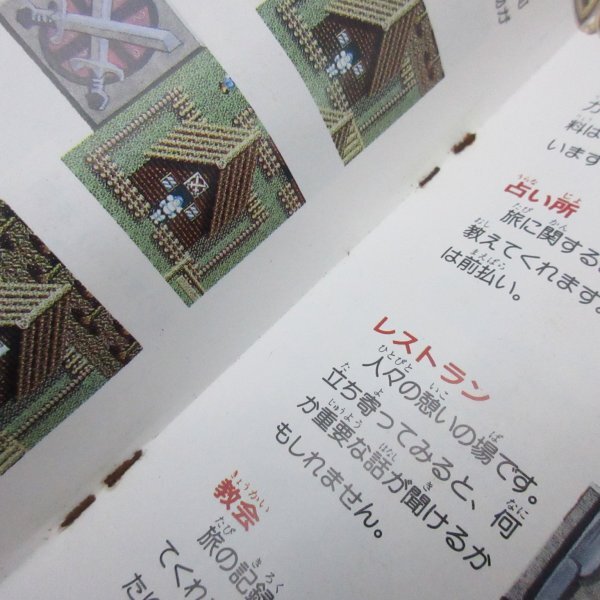 料は
います
占い所
旅に関する
教えてくれます。
は前払い。
レストラン
人々の憩いの場です。
立ち寄ってみると、何
か重要な話が聞けるか
もしれません。
教会
旅の記録
てくれ